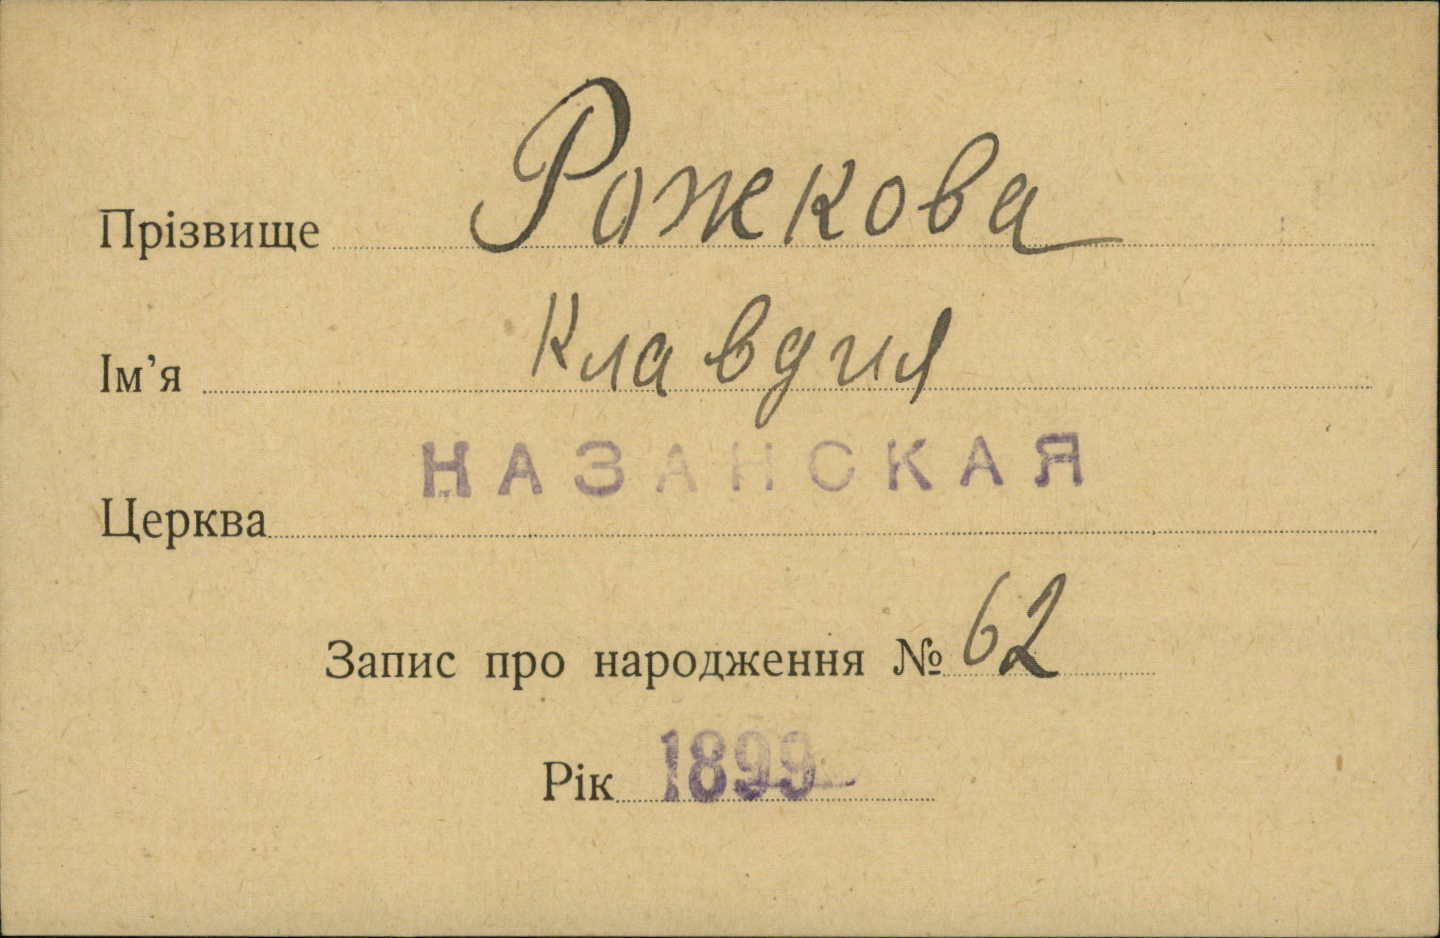 Прізвище Рожкова
Ім’я Клавдия
Церква КАЗАНСКАЯ
Запис про народження № 62
Рік 1899